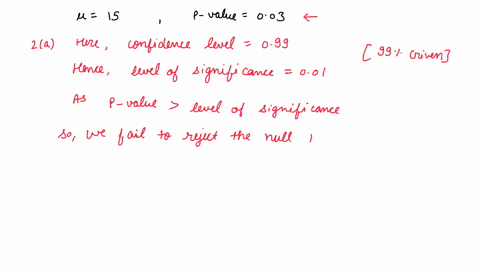 μ = 15 , P-value = 0.03 ←
2(a) Here, confidence level = 0.99 [99% Given]
Hence, level of significance = 0.01
As P-value > level of significance
so, we fail to reject the null